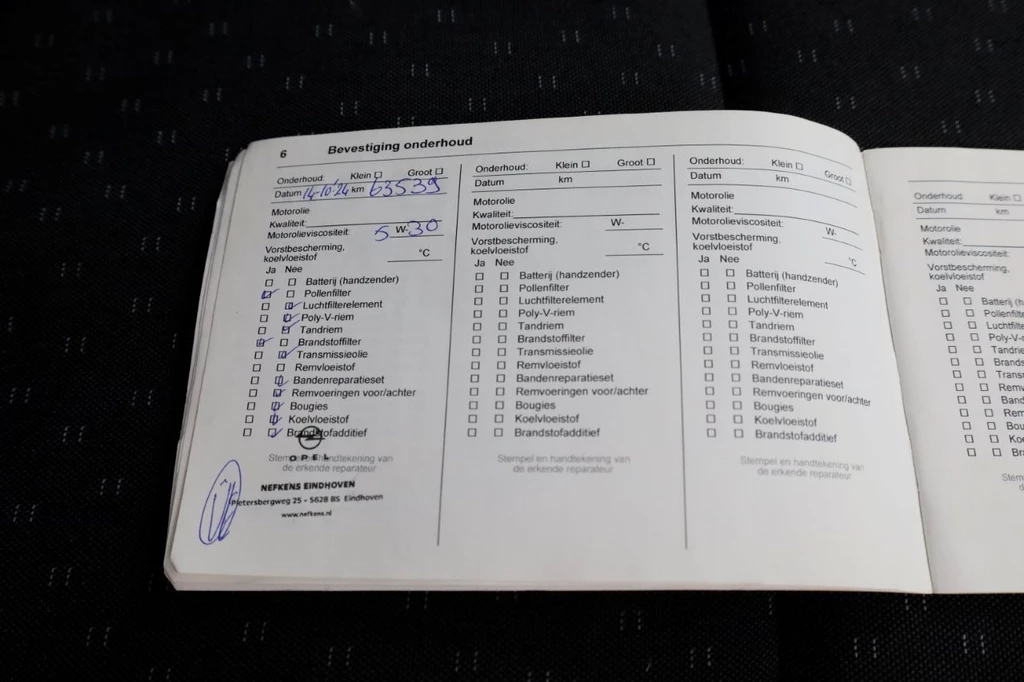 6 Bevestiging onderhoud
Onderhoud: Klein ☐ Groot ☐
Datum 14-10'24 km 63539
Motorolie
Kwaliteit:
Motorolieviscositeit: 5 W- 30
Vorstbescherming,
koelvloeistof °C
Ja Nee
Batterij (handzender)
Pollenfilter
Luchtfilterelement
Poly-V-riem
Tandriem
Brandstoffilter
Transmissieolie
Remvloeistof
Bandenreparatieset
Remvoeringen voor/achter
Bougies
Koelvloeistof
Brandstofadditief
OPEL
Stempel en handtekening van
de erkende reparateur
NEFKENS EINDHOVEN
Pietersbergweg 25 - 5628 BS Eindhoven
www.nefkens.nl
Onderhoud: Klein ☐ Groot ☐
Datum km
Motorolie
Kwaliteit:
Motorolieviscositeit: W-
Vorstbescherming,
koelvloeistof °C
Ja Nee
Batterij (handzender)
Pollenfilter
Luchtfilterelement
Poly-V-riem
Tandriem
Brandstoffilter
Transmissieolie
Remvloeistof
Bandenreparatieset
Remvoeringen voor/achter
Bougies
Koelvloeistof
Brandstofadditief
Stempel en handtekening van
de erkende reparateur
Onderhoud: Klein ☐ Groot ☐
Datum km
Motorolie
Kwaliteit:
Motorolieviscositeit: W-
Vorstbescherming,
koelvloeistof °C
Ja Nee
Batterij (handzender)
Pollenfilter
Luchtfilterelement
Poly-V-riem
Tandriem
Brandstoffilter
Transmissieolie
Remvloeistof
Bandenreparatieset
Remvoeringen voor/achter
Bougies
Koelvloeistof
Brandstofadditief
Stempel en handtekening van
de erkende reparateur
Onderhoud: Klein ☐
Datum km
Motorolie
Kwaliteit:
Motorolieviscositeit:
Vorstbescherming,
koelvloeistof
Ja Nee
Batterij (h
Pollenfilte
Luchtfilte
Poly-V-
Tandrie
Brands
Trans
Rem
Band
Rem
Bou
Koe
Br
Stem
d